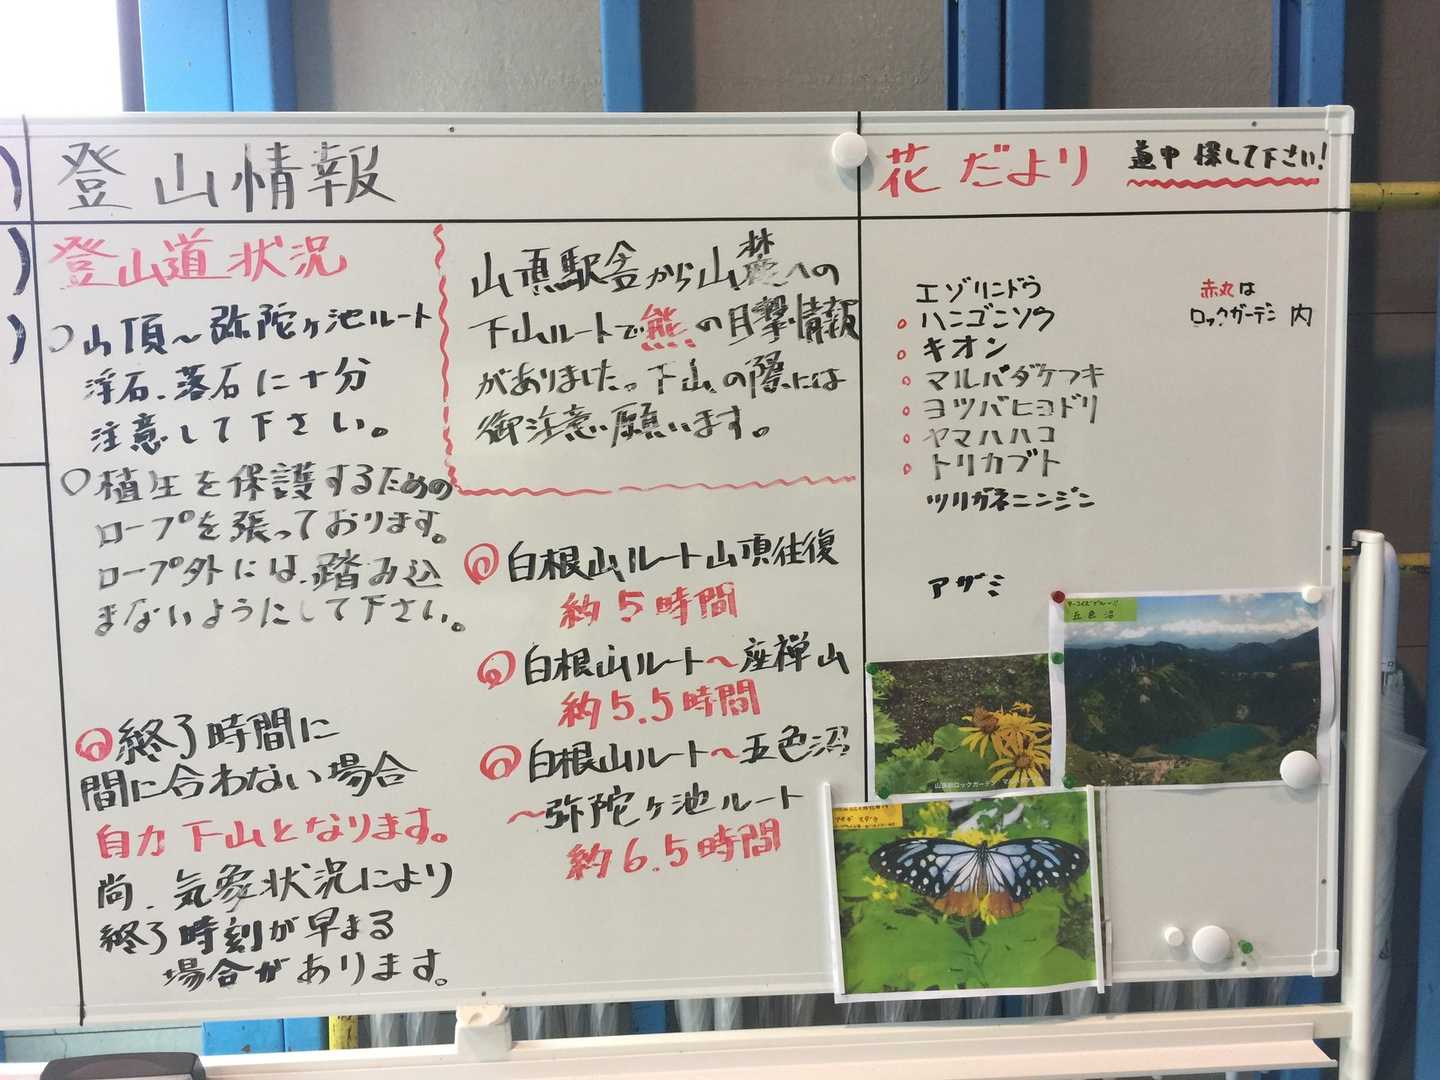 登山情報
登山道状況
○山頂～弥陀ヶ池ルート
浮石、落石に十分
注意して下さい。
○植生を保護するための
ロープを張っております。
ロープ外には、踏み込
まないようにして下さい。
◎終了時間に
間に合わない場合
自力下山となります。
尚、気象状況により
終了時刻が早まる
場合があります。
山頂駅舎から山麓への
下山ルートで熊の目撃情報
がありました。下山の際には
御注意願います。
◎白根山ルート山頂往復
約5時間
◎白根山ルート～座禅山
約5.5時間
◎白根山ルート～五色沼
～弥陀ヶ池ルート
約6.5時間
花だより
道中探して下さい!
エゾリンドウ
○ハンゴンソウ
○キオン
○マルバダケブキ
○ヨツバヒヨドリ
○ヤマハハコ
○トリカブト
ツリガネニンジン
アザミ
赤丸は
ロックガーデン内
五色沼